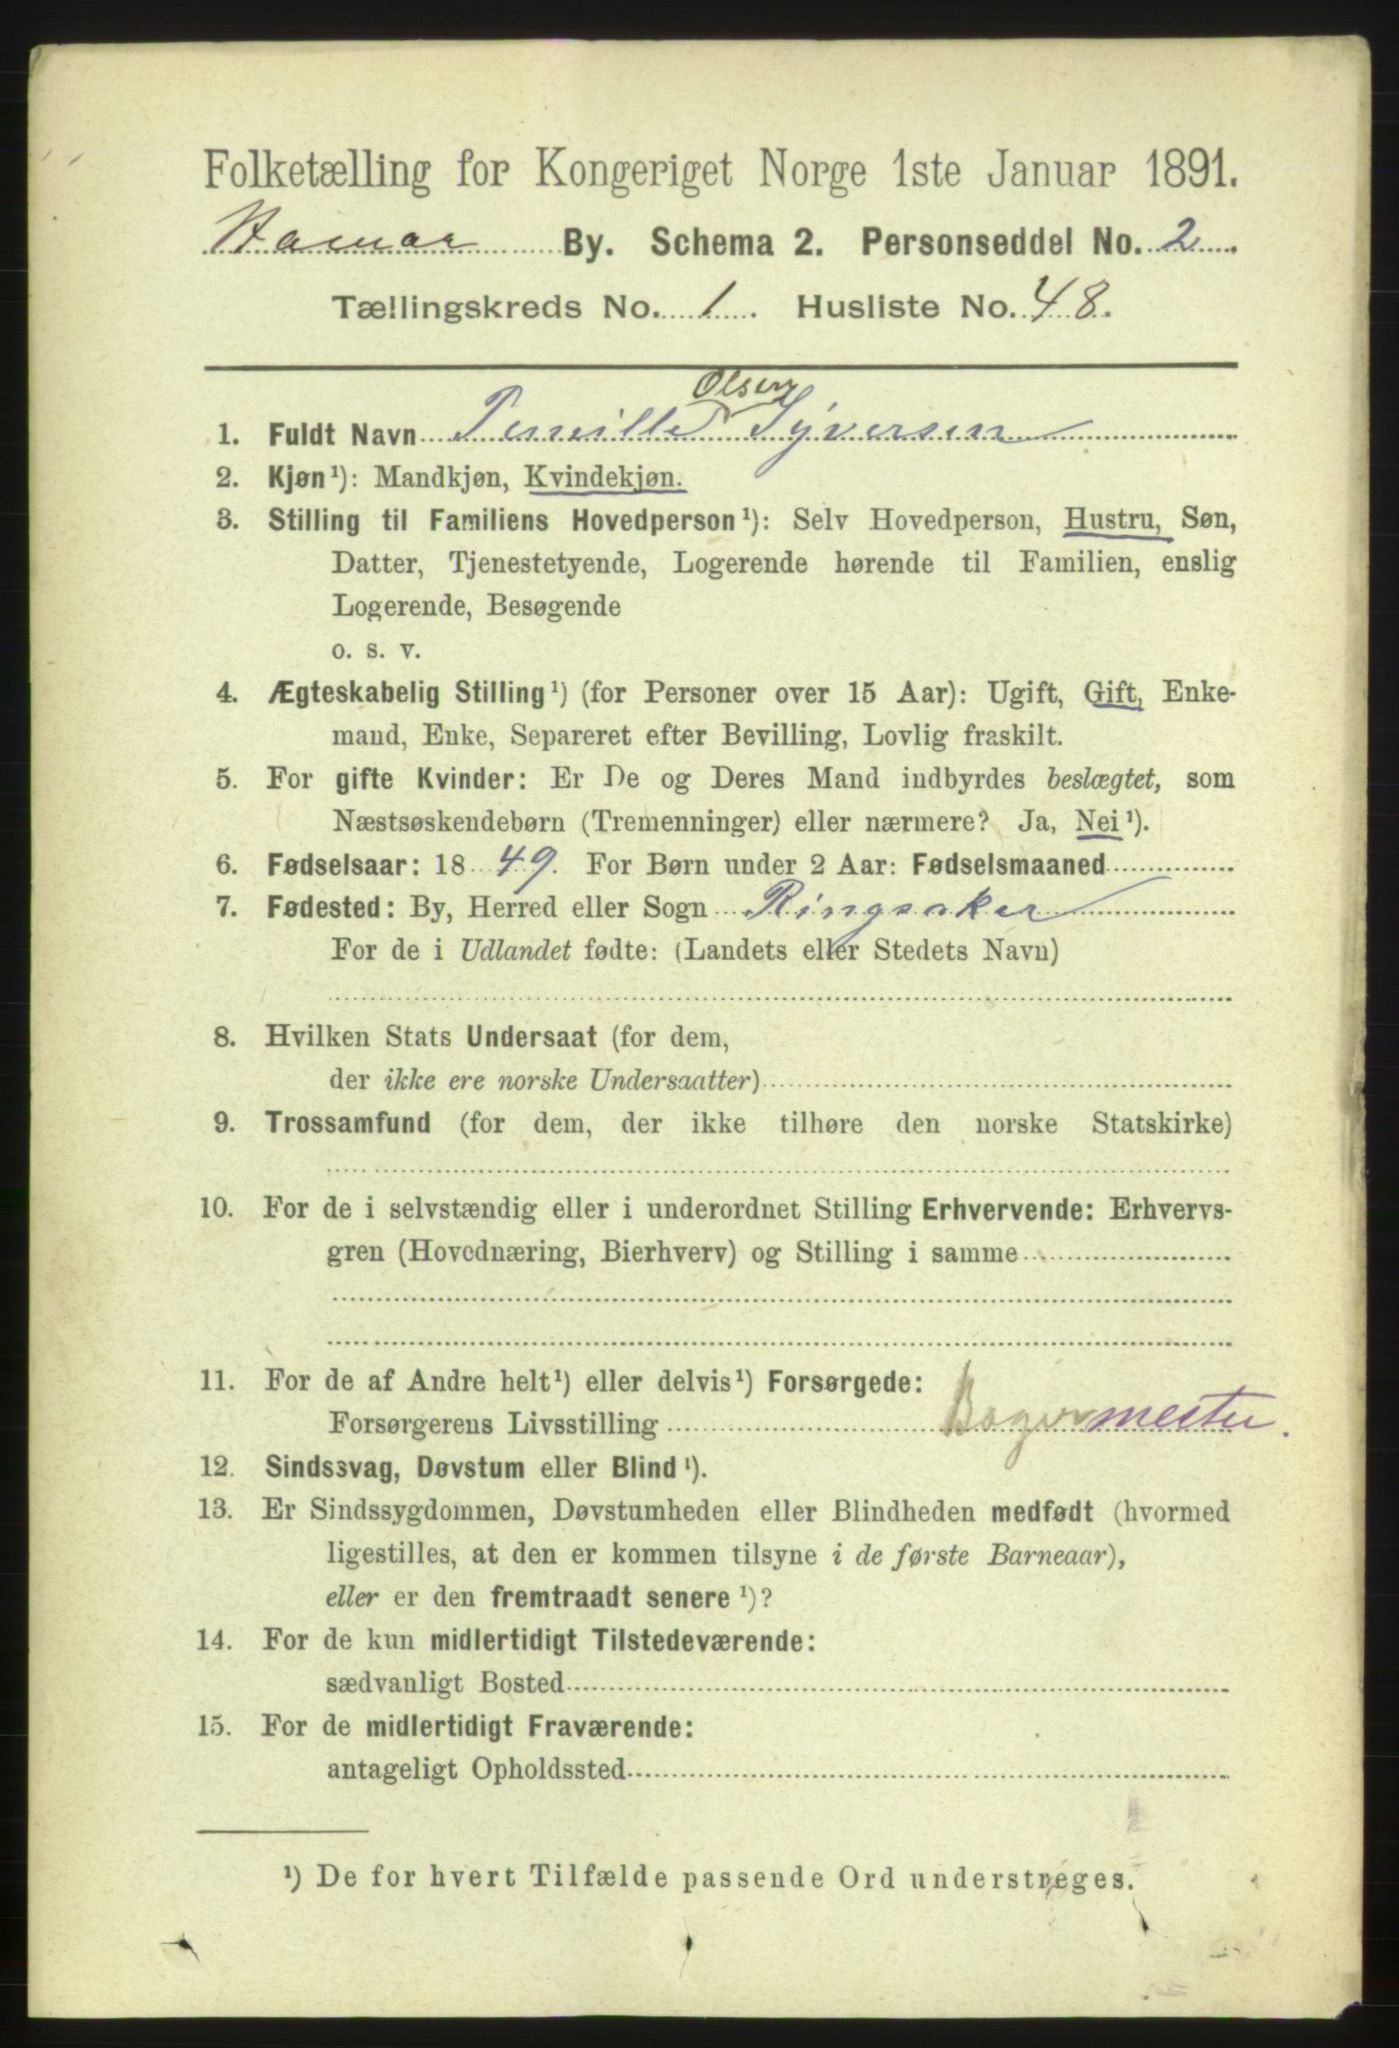 Folketælling for Kongeriget Norge 1ste Januar 1891.
Hamar By. Schema 2. Personseddel No. 2
Tællingskreds No. 1. Husliste No. 48.
Olsen
1. Fuldt Navn Pernille Syversen
2. Kjøn¹): Mandkjøn, Kvindekjøn.
3. Stilling til Familiens Hovedperson¹): Selv Hovedperson, Hustru, Søn,
Datter, Tjenestetyende, Logerende hørende til Familien, enslig
Logerende, Besøgende
o. s. v.
4. Ægteskabelig Stilling¹) (for Personer over 15 Aar): Ugift, Gift, Enke-
mand, Enke, Separeret efter Bevilling, Lovlig fraskilt.
5. For gifte Kvinder: Er De og Deres Mand indbyrdes beslægtet, som
Næstsøskendebørn (Tremenninger) eller nærmere? Ja, Nei¹).
6. Fødselsaar: 1849. For Børn under 2 Aar: Fødselsmaaned
7. Fødested: By, Herred eller Sogn Ringsaker
For de i Udlandet fødte: (Landets eller Stedets Navn)
8. Hvilken Stats Undersaat (for dem,
der ikke ere norske Undersaatter)
9. Trossamfund (for dem, der ikke tilhøre den norske Statskirke)
10. For de i selvstændig eller i underordnet Stilling Erhvervende: Erhvervs-
gren (Hovednæring, Bierhverv) og Stilling i samme
11. For de af Andre helt¹) eller delvis¹) Forsørgede:
Forsørgerens Livsstilling Bagermester.
12. Sindssvag, Døvstum eller Blind¹).
13. Er Sindssygdommen, Døvstumheden eller Blindheden medfødt (hvormed
ligestilles, at den er kommen tilsyne i de første Barneaar),
eller er den fremtraadt senere¹)?
14. For de kun midlertidigt Tilstedeværende:
sædvanligt Bosted
15. For de midlertidigt Fraværende:
antageligt Opholdssted
¹) De for hvert Tilfælde passende Ord understreges.